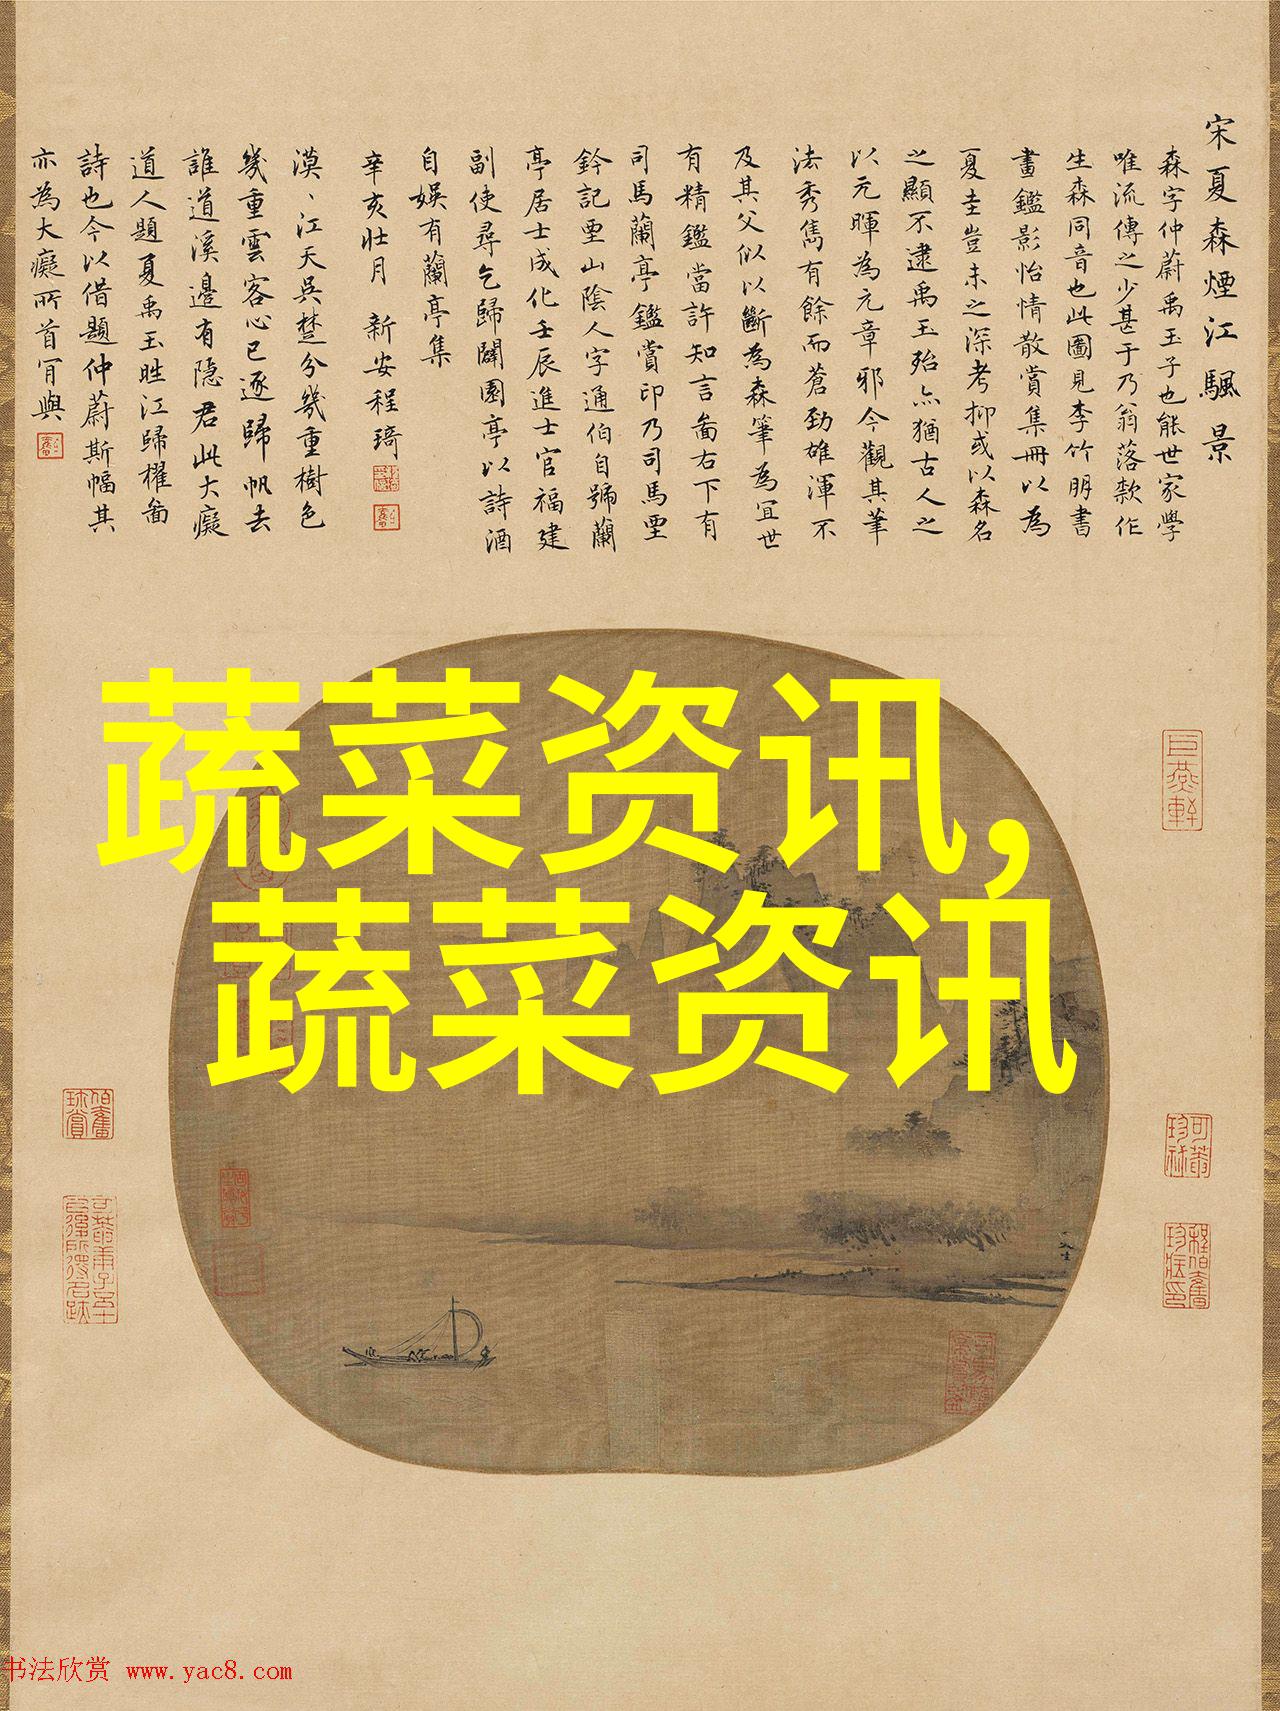 宋夏森煙江颿景
森字仲蔚禹玉子也能世家學
唯流傳之少甚于乃翁落款作
生森同音也此圖見李竹朋書
畫鑑影怡情散賞集冊以為
夏圭豈未之深考抑或以森名
之顯不逮禹玉殆亦猶古人之
以元暉為元章邪今觀其筆
法秀雋有餘而蒼勁雄渾不
及其父似以斷為森筆為宜世
有精鑑當許知言畣右下有
司馬蘭亭鑑賞印乃司馬垔
鈐記垔山陰人字通伯自號蘭
亭居士成化壬辰進士官福建
副使尋乞歸闢園亭以詩酒
自娛有蘭亭集
辛亥壯月 新安程琦
漠〻江天吳楚分幾重樹色
幾重雲客心已逐歸帆去
誰道溪邊有隱君此大癡
道人題夏禹玉晴江歸櫂畣
詩也今以借題仲蔚斯幅其
亦為大癡所首肎與
蔬菜资讯,
蔬菜资讯
书法欣赏 www.yac8.com